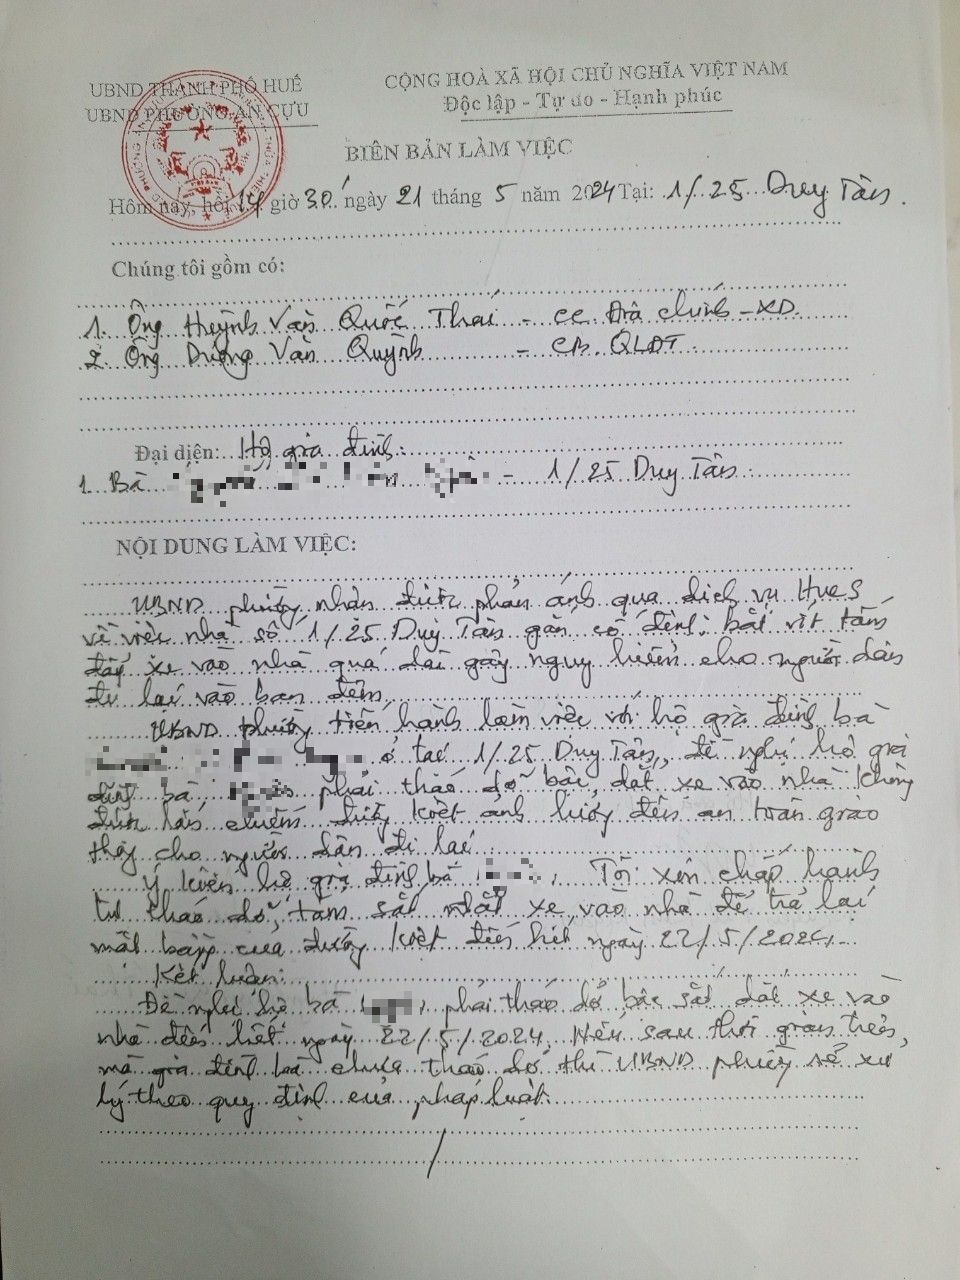 UBND THÀNH PHỐ HUẾ
UBND PHƯỜNG AN CỰU
CỘNG HOÀ XÃ HỘI CHỦ NGHĨA VIỆT NAM
Độc lập - Tự do - Hạnh phúc
BIÊN BẢN LÀM VIỆC
Hôm nay, hồi 14 giờ 30' ngày 21 tháng 5 năm 2024 Tại: 1/25 Duy Tân.
Chúng tôi gồm có:
1. Ông Huỳnh Văn Quốc Thái - CC Địa chính - XD.
2. Ông Dương Văn Quỳnh - CB. QLĐT.
Đại diện: Hộ gia đình:
1. Bà - 1/25 Duy Tân.
NỘI DUNG LÀM VIỆC:
UBND phường nhận được phản ánh qua dịch vụ HueS
về việc nhà số 1/25 Duy Tân gắn cố định, bắt vít tấm
dắt xe vào nhà quá dài gây nguy hiểm cho người dân
đi lại vào ban đêm.
UBND phường tiến hành làm việc với hộ gia đình bà
ở tại 1/25 Duy Tân, đề nghị hộ gia
đình bà phải tháo dỡ bậc dắt xe vào nhà không
được lấn chiếm đường kiệt ảnh hưởng đến an toàn giao
thông cho người dân đi lại.
Ý kiến hộ gia đình bà : Tôi xin chấp hành
tự tháo dỡ tấm sắt dắt xe vào nhà để trả lại
mặt bằng của đường kiệt đến hết ngày 22/5/2024.
Kết luận:
Đề nghị hộ bà phải tháo dỡ bậc sắt dắt xe vào
nhà đến hết ngày 22/5/2024. Nếu sau thời gian trên,
mà gia đình bà chưa tháo dỡ thì UBND phường sẽ xử
lý theo quy định của pháp luật.